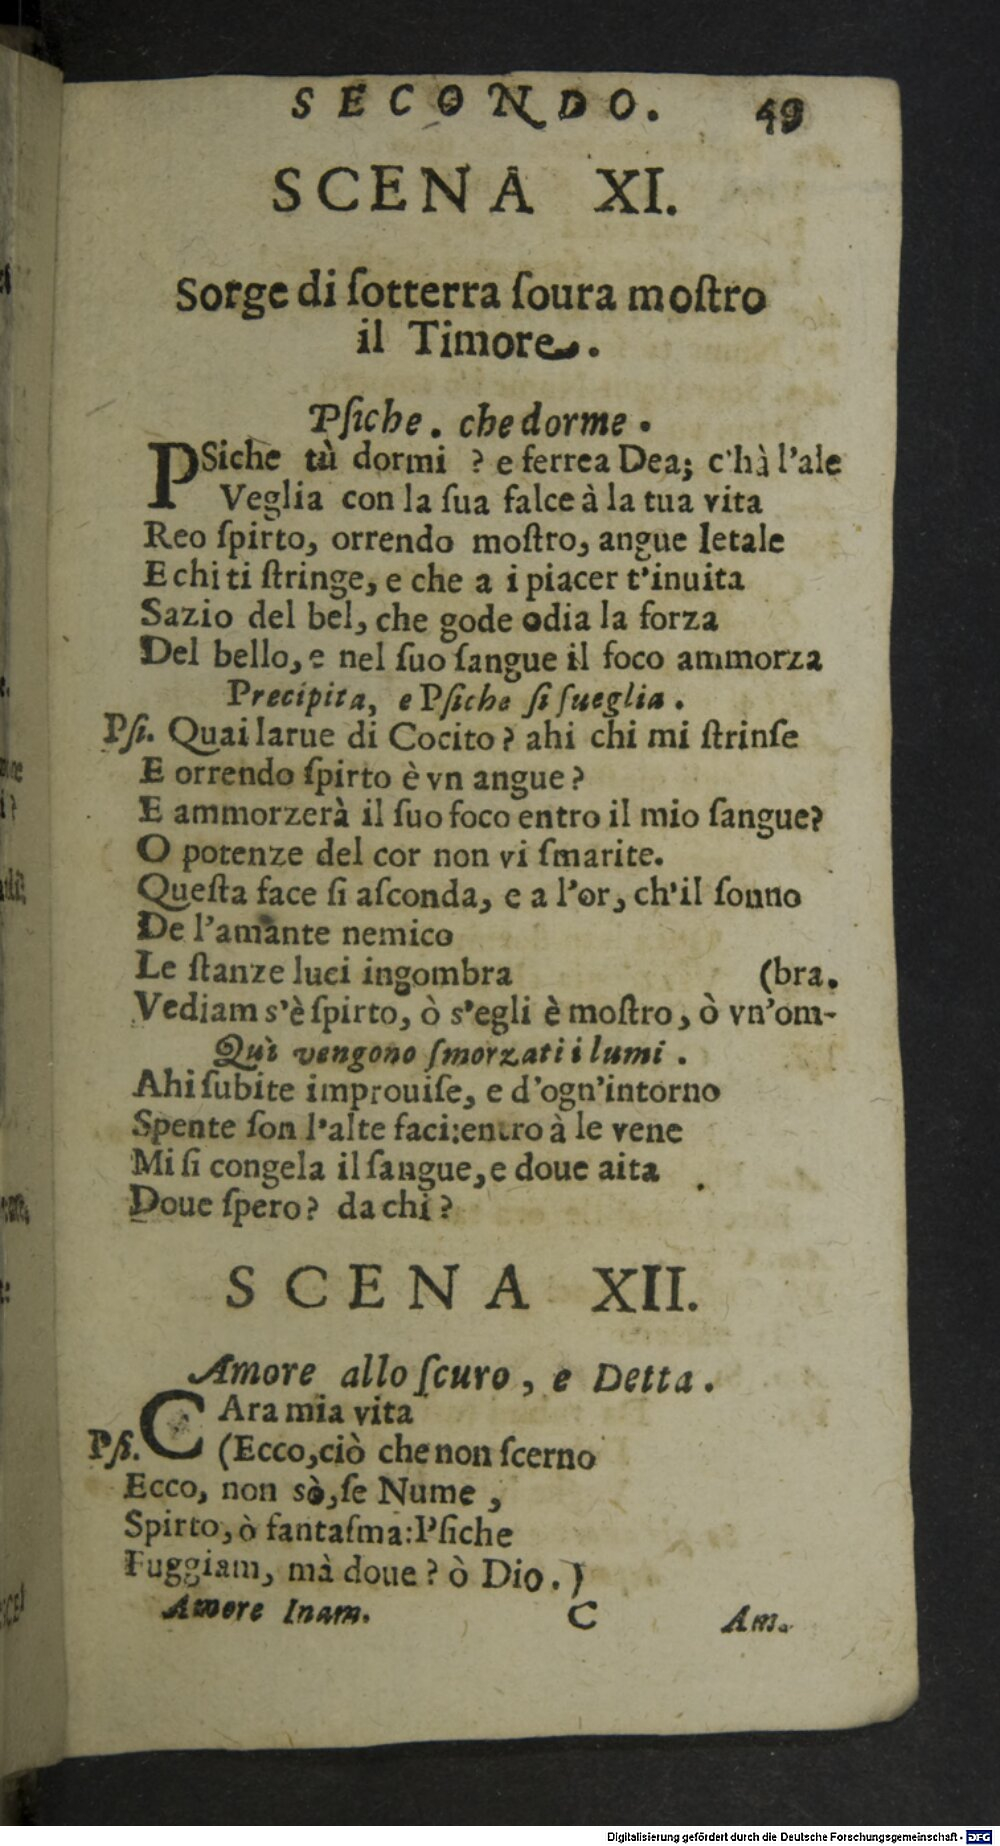 SECONDO. 49
SCENA XI.
Sorge di ſotterra ſoura moſtro
il Timore.
Pſiche. che dorme.
PSiche tù dormi ? e ferrea Dea; c'hà l'ale
Veglia con la ſua falce à la tua vita
Reo ſpirto, orrendo moſtro, angue letale
E chi ti ſtringe, e che a i piacer t'inuita
Sazio del bel, che gode odia la forza
Del bello, e nel ſuo ſangue il foco ammorza
Precipita, e Pſiche ſi ſueglia.
Pſi. Quai larue di Cocito? ahi chi mi ſtrinſe
E orrendo ſpirto è vn angue?
E ammorzerà il ſuo foco entro il mio ſangue?
O potenze del cor non vi ſmarite.
Queſta face ſi aſconda, e a l'or, ch'il ſonno
De l'amante nemico
Le ſtanze luci ingombra (bra.
Vediam s'è ſpirto, ò s'egli è moſtro, ò vn'om-
Quì vengono ſmorzati i lumi.
Ahi ſubite improuiſe, e d'ogn'intorno
Spente ſon l'alte faci: entro à le vene
Mi ſi congela il ſangue, e doue aita
Doue ſpero? da chi?
SCENA XII.
Amore allo ſcuro, e Detta.
CAra mia vita
Pſi. (Ecco, ciò che non ſcerno
Ecco, non sò, ſe Nume,
Spirto, ò fantaſma: Pſiche
Fuggiam, mà doue? ò Dio.)
Amore Inam. C Am.
Digitalisierung gefördert durch die Deutsche Forschungsgemeinschaft - DFG